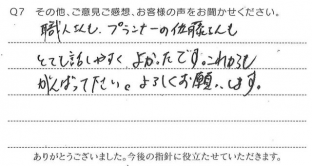 Q7 その他、ご意見ご感想、お客様の声をお聞かせください。
職人さんも、プランナーの佐藤さんも
とても話しやすく よかったです。これからも
がんばって下さい。よろしくお願いします。
ありがとうございました。今後の指針に役立たせていただきます。